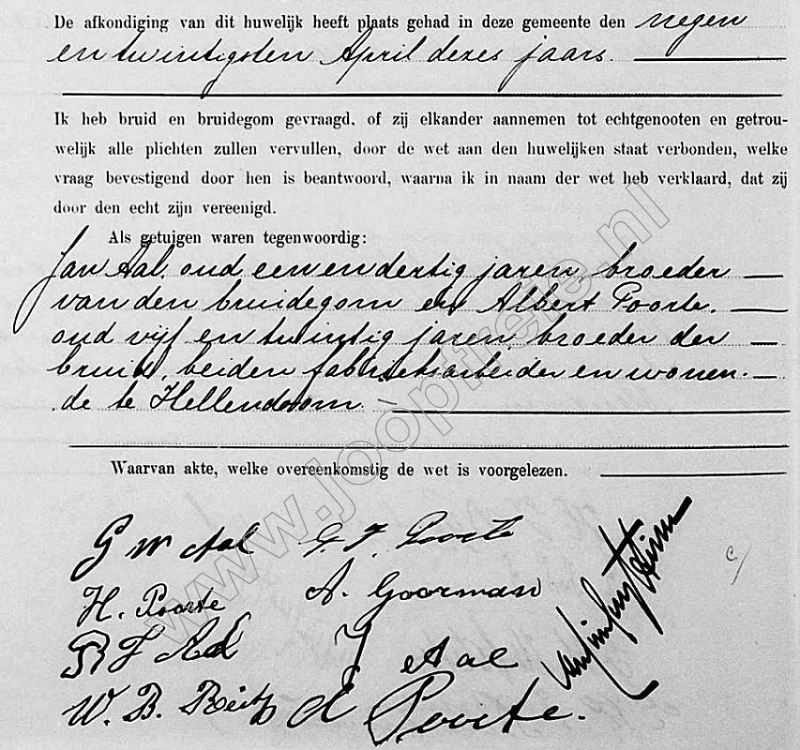 De afkondiging van dit huwelijk heeft plaats gehad in deze gemeente den negen
en twintigsten April dezes jaars.
Ik heb bruid en bruidegom gevraagd, of zij elkander aannemen tot echtgenooten en getrou-
welijk alle plichten zullen vervullen, door de wet aan den huwelijken staat verbonden, welke
vraag bevestigend door hen is beantwoord, waarna ik in naam der wet heb verklaard, dat zij
door den echt zijn vereenigd.
Als getuigen waren tegenwoordig:
Jan Aal, oud een en dertig jaren, broeder
van den bruidegom en Albert Poorte.
oud vijf en twintig jaren, broeder der
bruid, beiden fabrieksarbeider en wonen-
de te Hellendoorn
Waarvan akte, welke overeenkomstig de wet is voorgelezen.
G W Aal G. J. Poorte
H. Poorte A. Goorman
Aal J Aal
W. B. Poorte.
www.jooptreie.nl